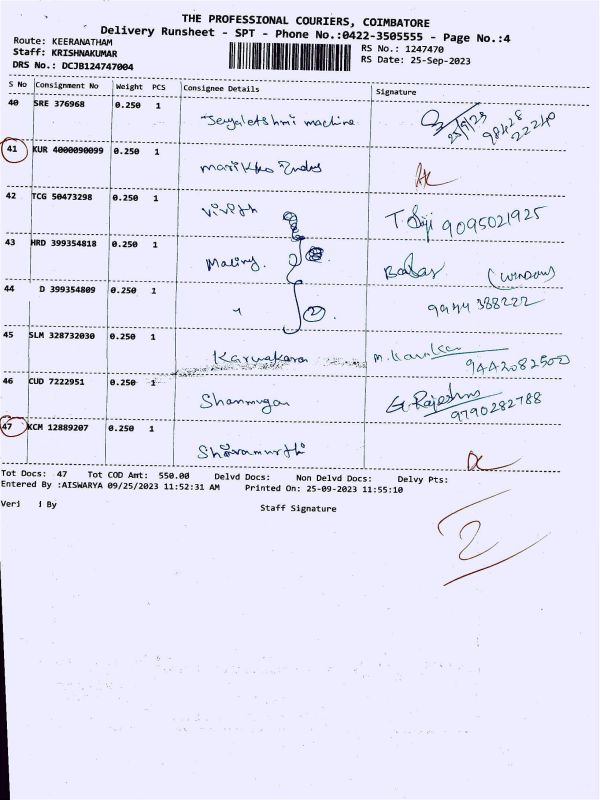 THE PROFESSIONAL COURIERS, COIMBATORE
Delivery Runsheet - SPT - Phone No.:0422-3505555 - Page No.:4
Route: KEERANATHAM
RS No.: 1247470
Staff: KRISHNAKUMAR
RS Date: 25-Sep-2023
DRS No.: DCJB124747004
S No Consignment No Weight PCS Consignee Details Signature
40 SRE 376968 0.250 1
machine 25/9/23 98428 22240
41 KUR 4000090099 0.250 1
42 TCG 50473298 0.250 1
Vivith 9095021925
43 HRD 399354818 0.250 1
Babas (WINDOW)
44 D 399354809 0.250 1
2 9944 388222
45 SLM 328732030 0.250 1
Karunakaran 9442082500
46 CUD 7222951 0.250 1
Shanmugan G. Rajeshns 9790282788
47 KCM 12889207 0.250 1
Tot Docs: 47 Tot COD Amt: 550.00 Delvd Docs: Non Delvd Docs: Delvy Pts:
Entered By :AISWARYA 09/25/2023 11:52:31 AM Printed On: 25-09-2023 11:55:10
Veri i By Staff Signature
2